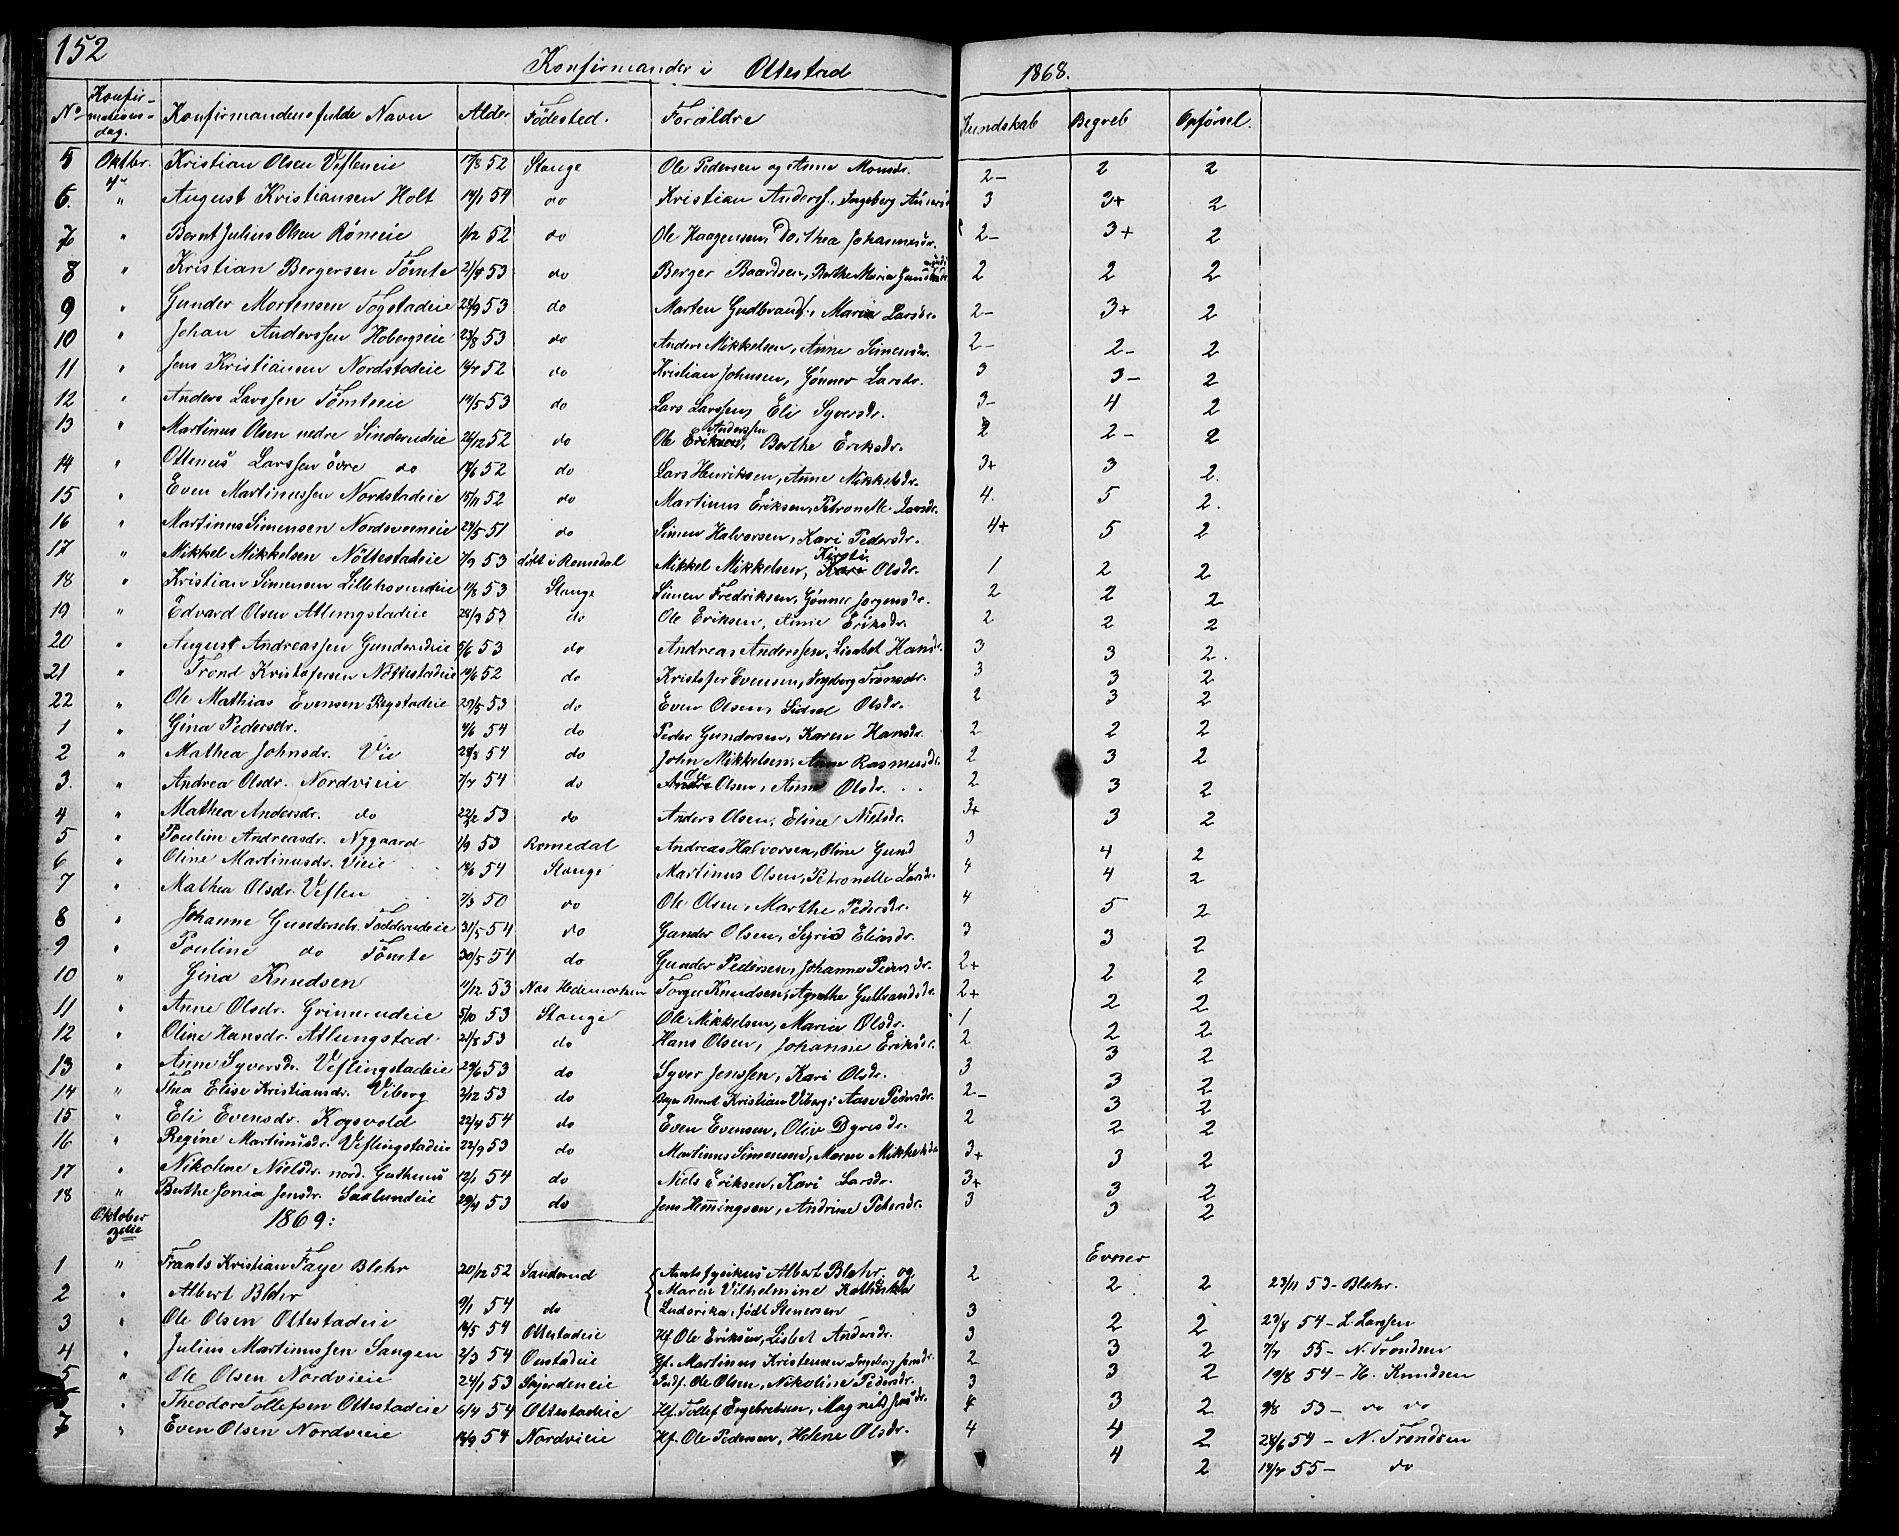 152
Konfirmander i Ottestad 1868.
No Konfirmations-dag. Konfirmandens fulde Navn Alder Fødested. Forældre Kundskab Begreb Opførsel.
5 Oktbr. 4de Kristian Olsen Vefleneie 17/8 52 Stange Ole Pedersen og Anne Monsdr. 2- 2 2
6. " August Kristiansen Holt 14/1 54 do Kristian Anderss., Ingeborg 3 3+ 2
7 " Bernt Julius Olsen Røneeie 1/12 52 do Ole Haagensen, Dorthea Johannesdr. 2- 3+ 2
8 " Kristian Bergersen Tømte 21/8 53 do Berger Baardsen, Berthe Maria 2 2 2
9 " Gunder Mortensen Togstadeie 28/9 53 do Morten Gudbrands., Maria Larsdr. 2- 3+ 2
10 " Johan Anderssen Hobergseie 23/8 53 do Anders Mikkelsen, Anne Simensdr. 2- 2- 2
11 " Jens Kristiansen Nordstadeie 14/7 52 do Kristian Johnsen, Gønner Larsdr. 3 3- 2
12 " Anders Larssen Tømteeie 14/5 53 do Lars Larssen, Eli Syversdr. 3- 4 2
13 " Martinus Olsen nedre Sinderudeie 26/12 52 do Ole Eriksen Anderssen, Berthe Eriksdr. 2 2- 2
14 " Ottenus Larssen øvre do 17/6 52 do Lars Henriksen, Anne Mikkelsdr. 3+ 3 2.
15 " Even Martinussen Nordstadeie 15/11 52 do Martinus Eriksen, Petronelle Larsdr. 4. 5 2.
16 " Martinus Simensen Nordsveeneie 29/5 51 do Simen Halvorsen, Kari Pedersdr. 4+ 5 2
17 " Mikkel Mikkelsen Nøttestadeie 7/9 53 døbt i Romedal Mikkel Mikkelsen, Kari Kirsti Olsdr. 1 2 2
18 " Kristian Simensen Lillehovendeie 11/8 53 Stange Simen Fredriksen, Gønner Jørgensdr. 2 2 2
19 " Edvard Olsen Atlungstadeie 28/3 53 do Ole Eriksen, Anne Eriksdr. 2 2 2
20 " August Andreassen Gunderudeie 5/6 53 do Andreas Anderssen, Lisabet Hansdr. 3 3 2.
21 " Trond Kristofersen Nøttestadeie 19/6 52 do Kristofer Evensen, Ingeborg Tronsdr. 3 3 2
22 " Ole Mathias Evensen Rystadeie 27/5 53 do Even Olsen, Sidsel Olsdr. 2 3 2
1 " Gina Pedersdr. 4/6 54 do Peder Gundersen, Karen Hansdr. 2 2 2
2 " Mathea Johnsdr. Vie 28/8 54 do John Mikkelsen, Anne Rasmusdr. 2 3 2
3. " Andrea Olsdr. Nordvieie 7/7 54 do Anders Ole Olsen, Anne Olsdr. 2 3 2
4 " Mathea Andersdr. do 22/2 53 do Anders Olsen, Eline Nielsdr. 3+ 3 2
5 " Pouline Andreasdr. Nygaard 1/9 53 Romedal Andreas Halvorsen, Oline Gund 3 4 2
6 " Oline Martinusdr. Vieie 14/6 54 Stange Martinus Olsen, Petronelle Larsdr. 4 4 2
7 " Mathea Olsdr. Veflen 7/3 50 do Ole Olsen, Marthe Pedersdr. 4 5 2
8 " Johanne Gundersdr. Fodderudeie 31/5 54 do Gunder Olsen, Sigrid Eliasdr. 3 3 2
9 " Pouline do Tømte 30/5 54 do Gunder Pedersen, Johanne Pedersdr. 2+ 2 2
10 " Gina Knudsen 11/12 53 Næs Hedemarken Torger Knudsen, Agnethe Gulbrandsdr. 2+ 2 2
11 " Anne Olsdr. Grimerudeie 5/10 53 Stange Ole Mikkelsen, Maria Olsdr. 1 2 2
12 " Oline Hansdr. Atlungstad 21/8 53 do Hans Olsen, Johanne Eriksdr. 2 3 2
13 " Anne Syversdr. Veflingstadeie 29/6 53 do Syver Jenssen, Kari Olsdr. 3 3 2
14 " Thea Elise Kristiansdr. Viberg 3/12 53 do Bernt Kristian Viberg, Aase Pedersdr. 2- 3 2
15 " Eli Evensdr. Kogsvold 22/4 54 do Even Evensen, Oliv Dyresdr. 2 2 2
16 " Regine Martinusdr. Veflingstadeie 22/9 53 do Martinus Simensen, Maren Mikkelsdr. 3+ 3 2
17 " Nikoline Nielsdr. nord. Guthuus 12/1 54 do Niels Eriksen, Kari Larsdr. 3+ 3 2
18 " Berthe Jonia Jensdr. Saxlundeie 29/4 53 do Jens Hemingsen, Andrine Petersdr. 3 3 2
Oktober 3die 1869: Evner
1 " Frants Kristian Faye Blehr 20/12 52 Sanderud Amtsfysikus Albert Blehr og 2 2 2 23/11 53 - Blehr.
2 " Albert Blehr 9/1 54 do Maren Vilhelmine Kathinka Ludovika, født Stenersen 3 2 2 23/8 54 - L. Larssen
3 " Ole Olsen Ottestadeie 14/5 54 Ottestadeie Hf. Ole Eriksen, Lisbet Andersdr. 3 3 2 7/7 55 - N. Trondsen
4 " Julius Martinussen Sangen 2/3 54 Onstadeie Gf. Martinus Kristensen, Ingeborg Jensdr. 2 3 2 19/8 54 - H. Knudsen
5 " Ole Olsen Nordvieie 24/1 53 Skjerdeneie Indf. Ole Olsen, Nikoline Pedersdr. 3 3 2 9/8 53 - do do
6 " Theodor Tollefsen Ottestadeie 6/4 54 Ottestadeie Hf. Tollef Engebretsen, Magnild Jensdr. 4 4 2 28/6 54 - N. Trondsen
7 " Even Olsen Nordvieie 18/9 54 Nordvieie Hf. Ole Pedersen, Helene Olsdr. 4 4 2 14/7 55 - do